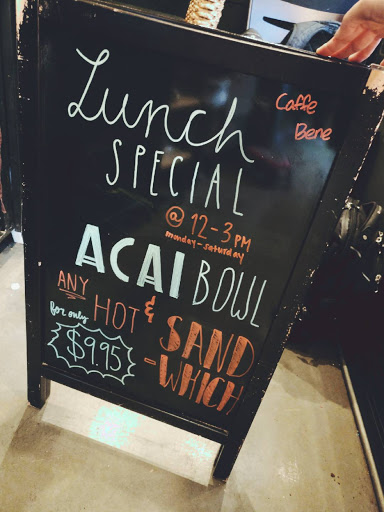 Lunch
SPECIAL
Caffe
Bene
@ 12-3 PM
monday-saturday
ACAI BOWL
&
ANY HOT SAND
-WHICH
for only
$9.95